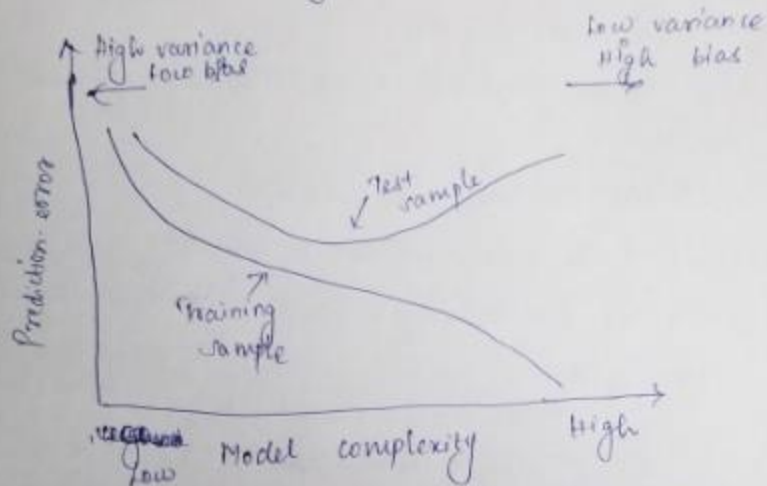 High variance
low bias
Low variance
High bias
Prediction error
Test
sample
Training
sample
Low
Model complexity
High